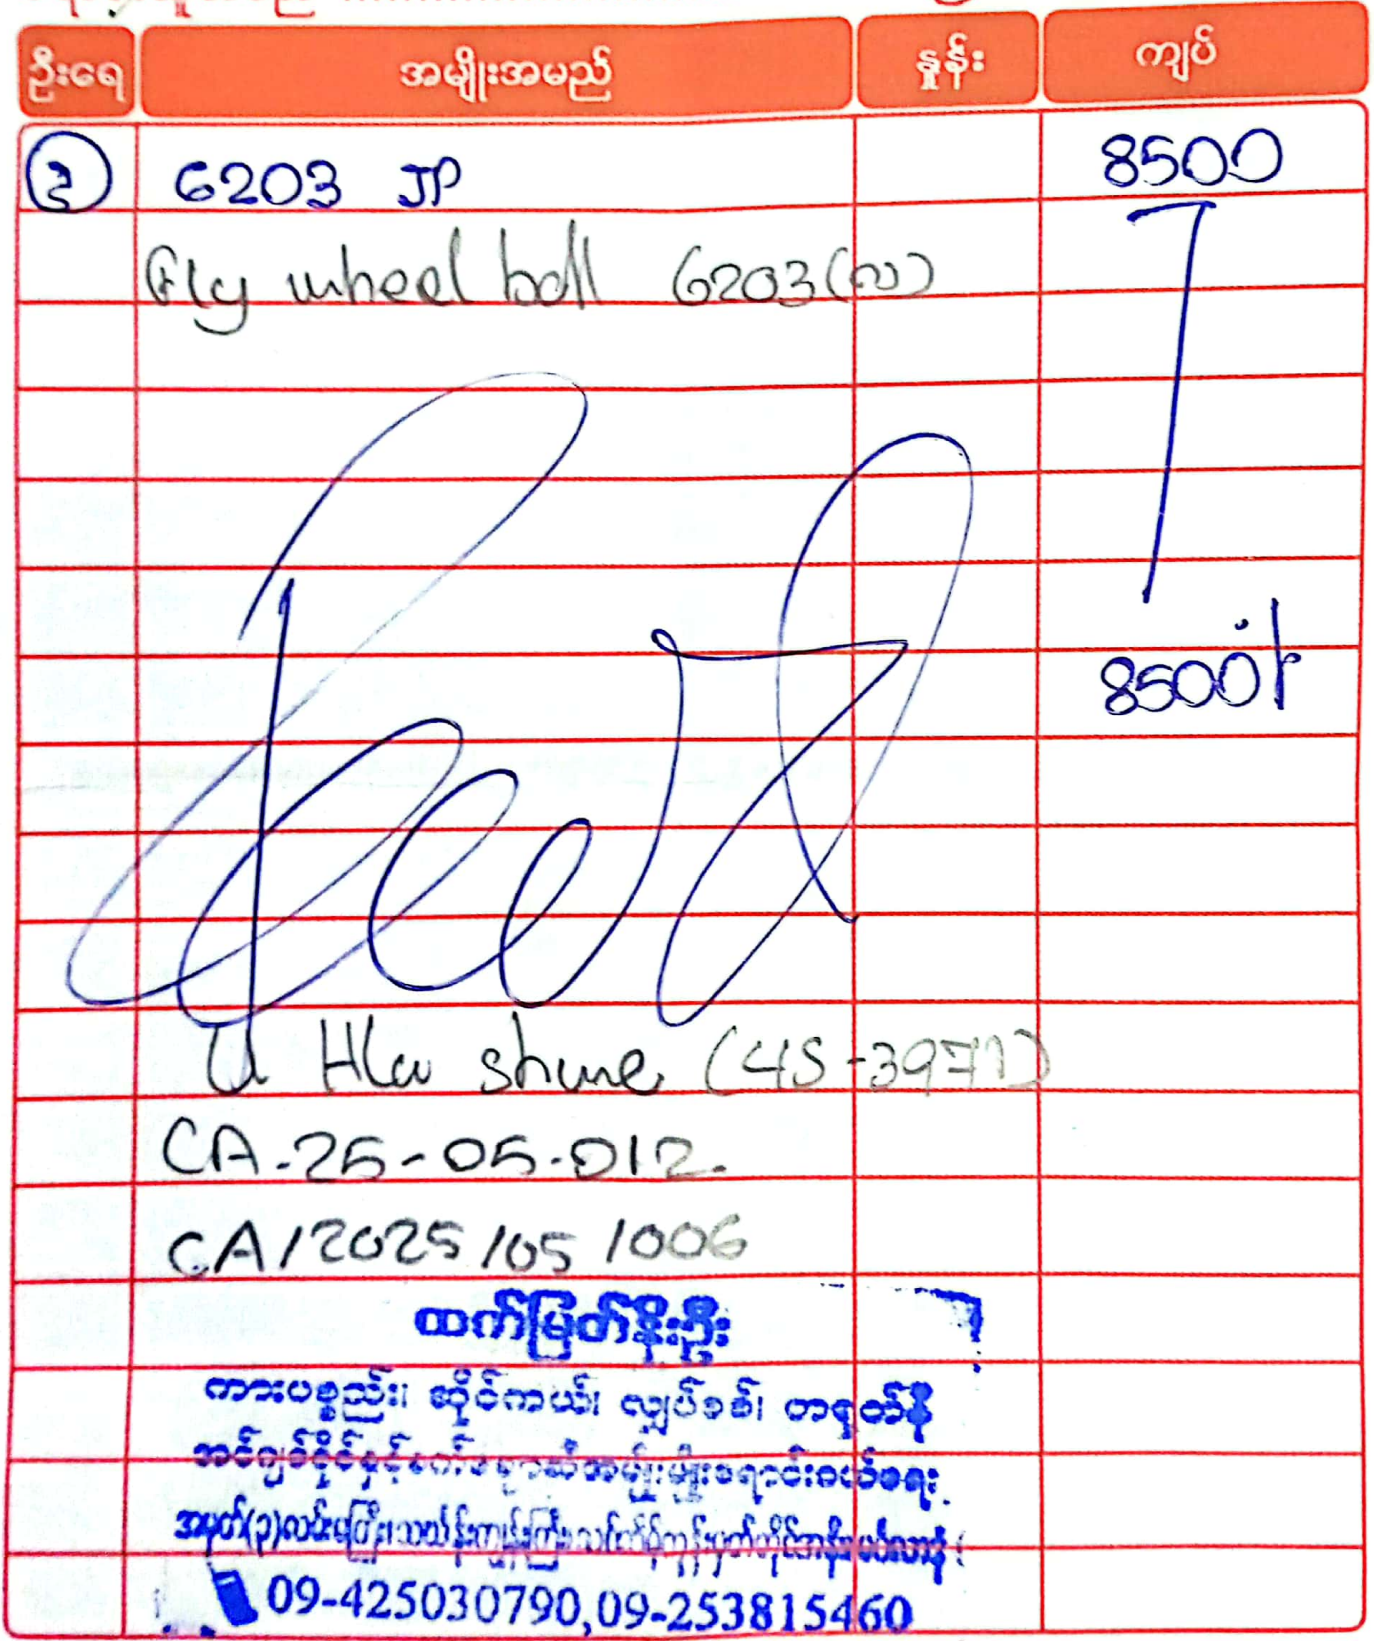 ဦးရေ အမျိုးအမည် နှုန်း ကျပ်
6203 JP 8500
Fly wheel ball 6203(လ)
8500
U Hla shwe (4S-3971)
CA-25-05-012.
CA/2025/05/006
ထက်မြတ်နိုးဦး
ကားပစ္စည်း၊ ဆိုင်ကယ်၊ လျှပ်စစ်၊ တရုတ်နီ
09-425030790,09-253815460